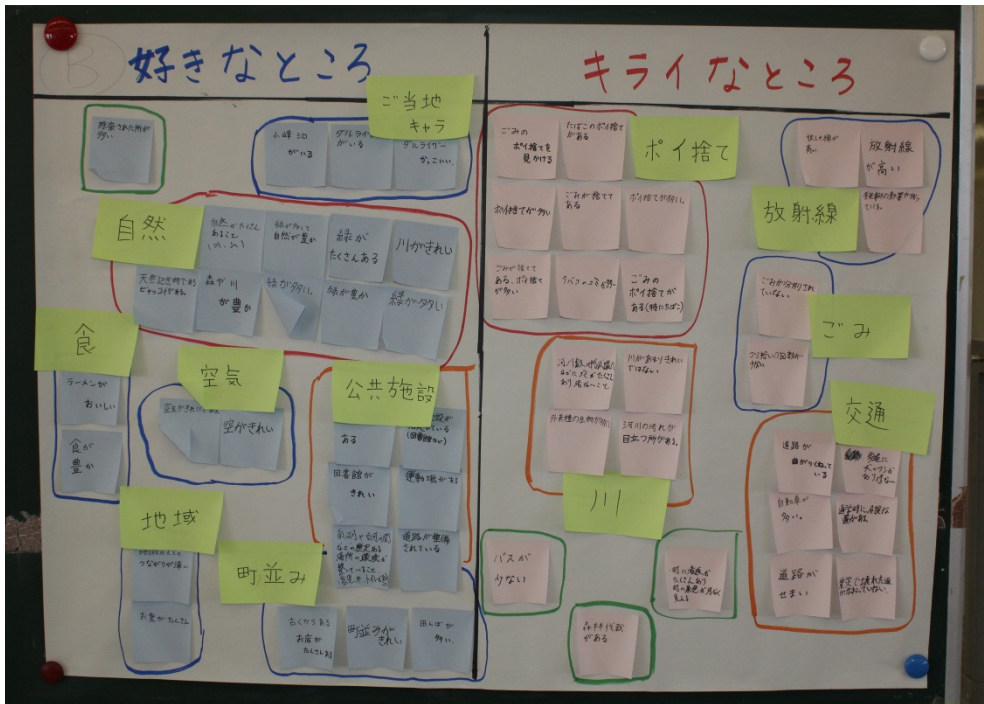 B
好きなところ
ご当地
キャラ
除染された所が
多い
がいる
ダルライザー
がいる
ダルライザー
かっこいい。
自然
自然がたくさん
あること
緑が多くて
自然が豊か
緑が
たくさんある
川がきれい
天然記念物であり
ビャッコイがある。
森や川
が豊か
緑が多い。
緑が豊か
緑が多い
食
ラーメンが
おいしい
食が
豊か
空気
空がきれい
公共施設
ある
(図書館など)
図書館が
きれい
運動場がある
道路が整備
されている
地域
つながりが深い
お堂がたくさん
町並み
古くからある
お店が
たくさんある
町並みが
きれい
田んぼが
多い。
キライなところ
ポイ捨て
ごみの
ポイ捨てを
見かける
たばこのポイ捨て
がある
ポイ捨てが多い
ごみが捨てて
ある
ポイ捨てが多い。
ごみが捨てて
ある、ポイ捨て
が多い
ごみの
ポイ捨てが
ある(特にたばこ)
放射線
放射線が
高い
放射線
が高い
ごみ
ごみが分別され
ていない
ゴミ拾いの回数が
少ない
川
川があまりきれい
ではない
外来種の生物が多い
河川の汚れが
目立つ所がある。
交通
道路が
曲がりくねって
いる
自動車が
多い。
道路が
せまい
バスが
少ない
森林伐採
がある